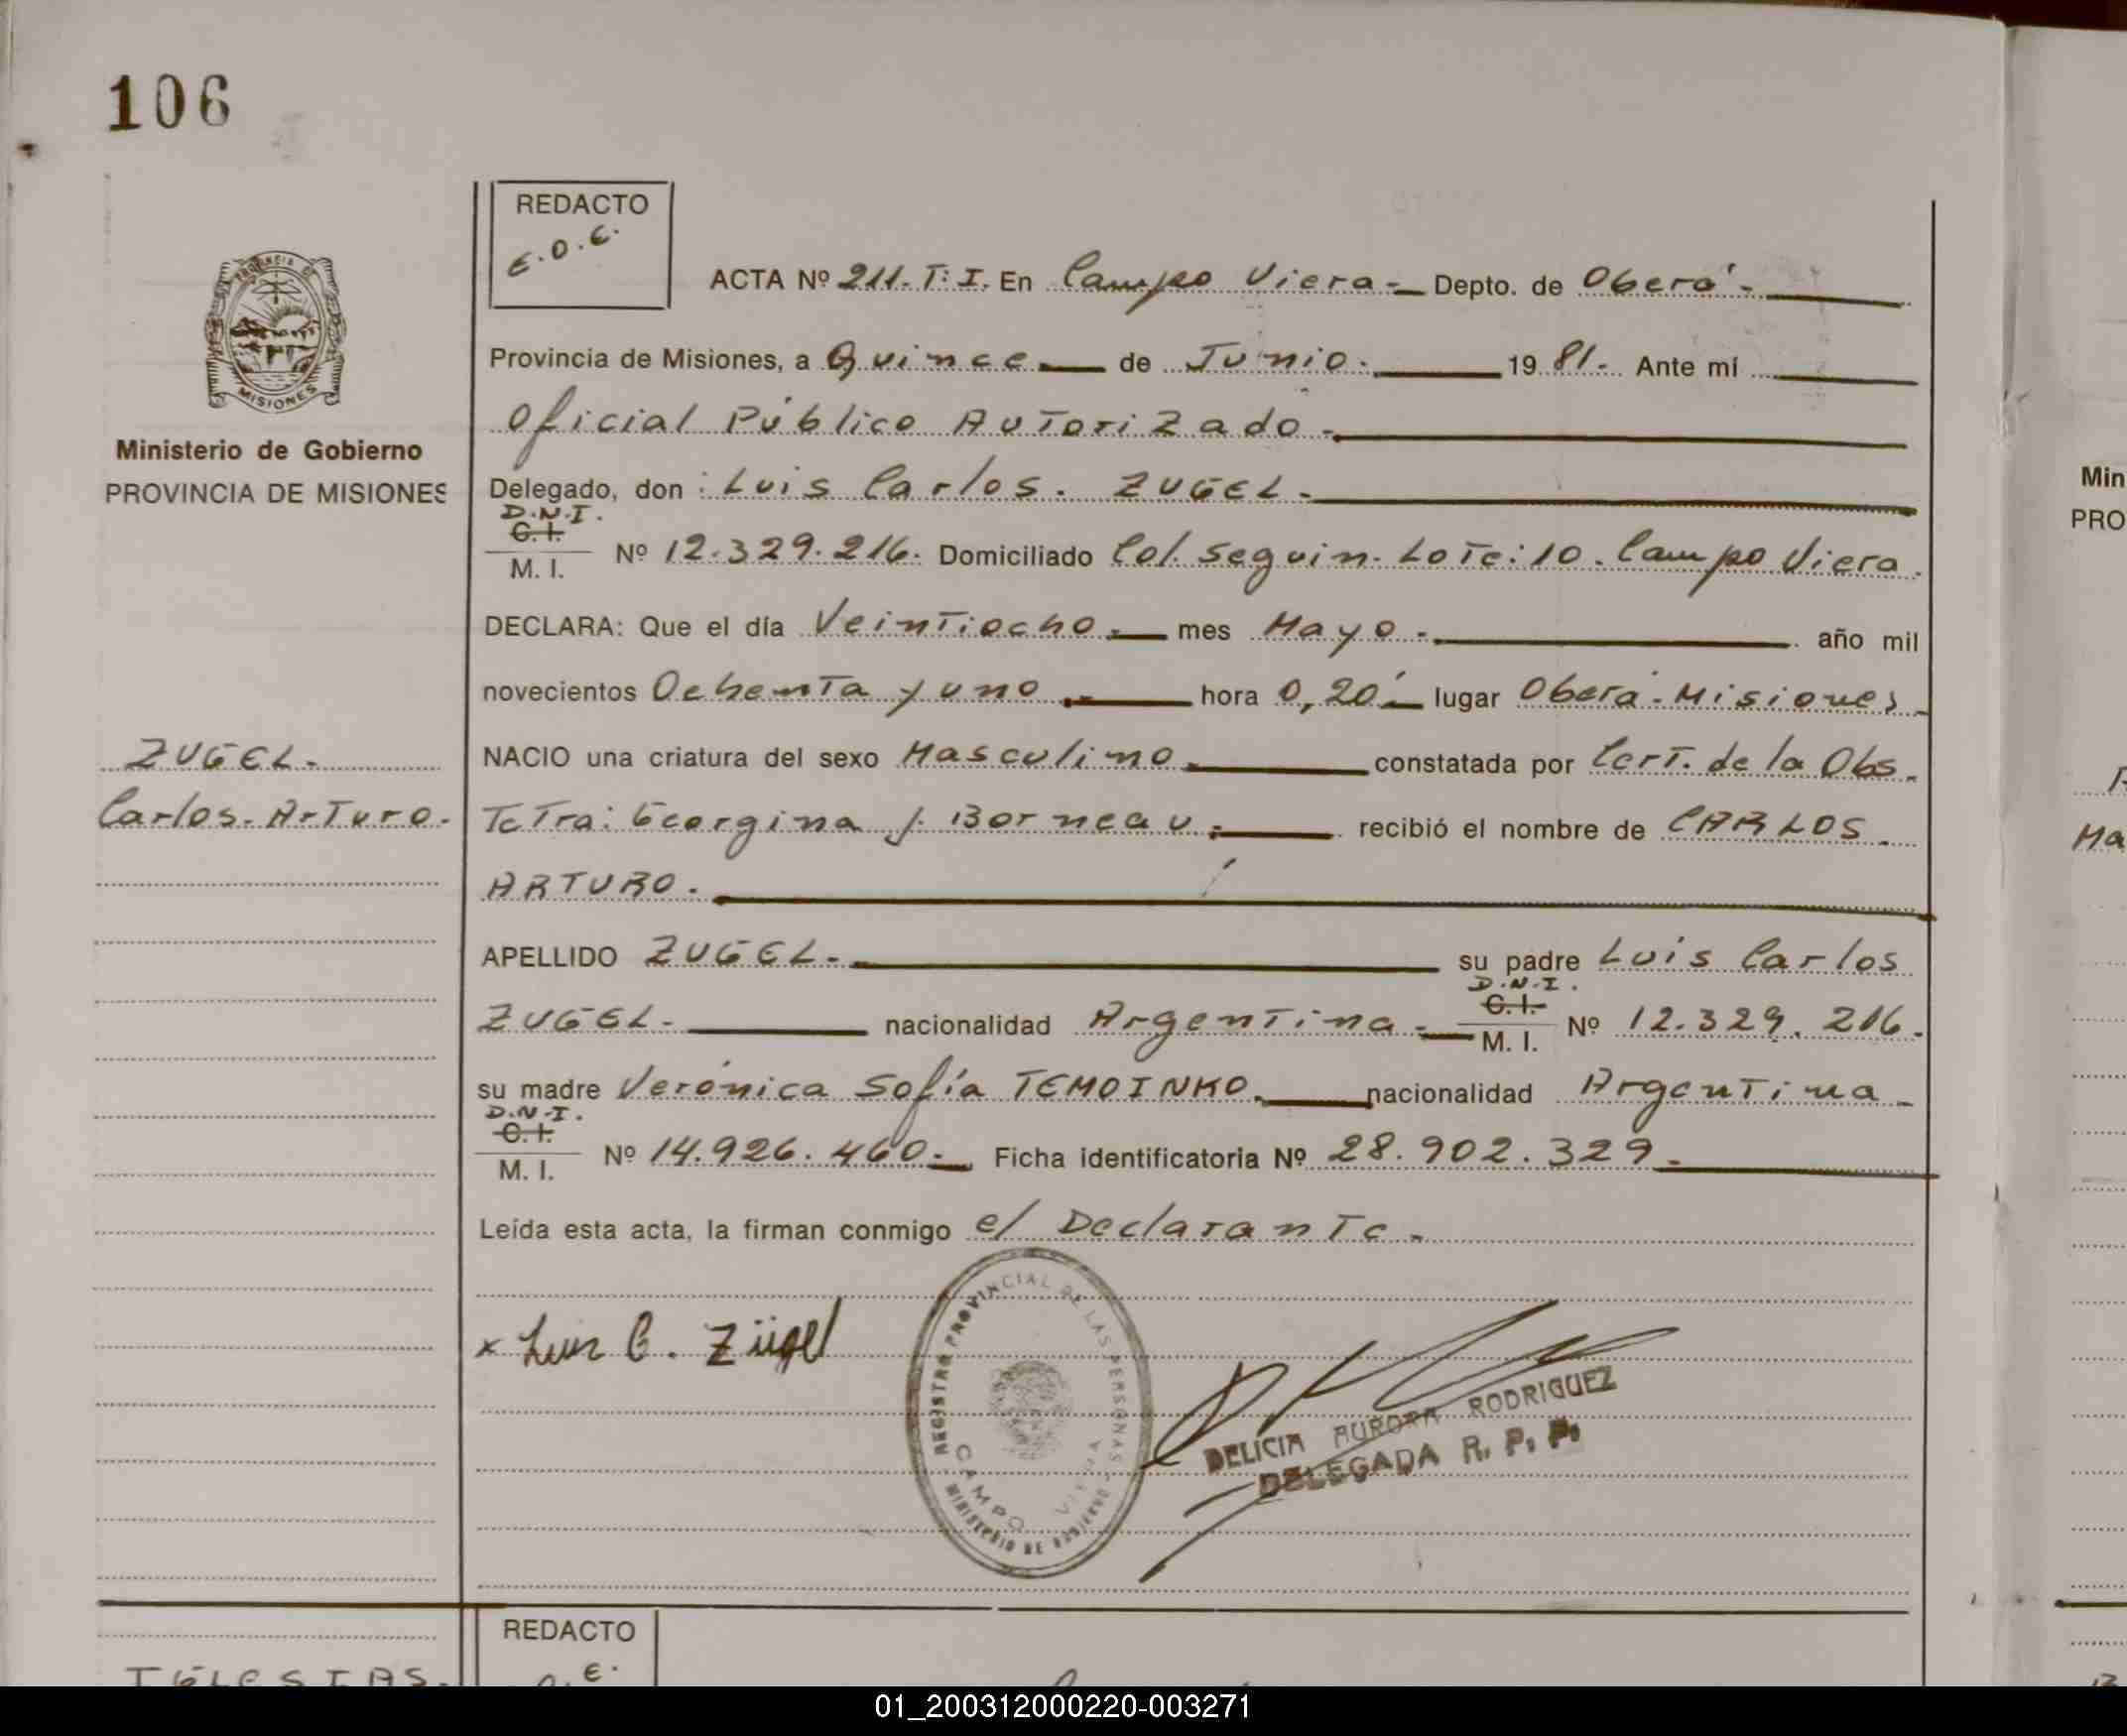 106
REDACTO
E.O.E.
ACTA Nº 211. T: I. En Campo Viera - Depto. de Oberá -
Provincia de Misiones, a Quince de Junio. 1981. Ante mí
Oficial Público Autorizado -
Ministerio de Gobierno
PROVINCIA DE MISIONES
MISIONES
Delegado, don : Luis Carlos. ZUGEL -
D.N.I.
C.I.
M. I. Nº 12.329.216. Domiciliado Col. Seguin. Lote: 10. Campo Viera.
DECLARA: Que el día Veintiocho. mes Mayo - año mil
novecientos Ochenta y uno. hora 0,20' lugar Oberá - Misiones -
NACIO una criatura del sexo Masculino. constatada por Cert. de la Obs-
ZUGEL.
Carlos. Arturo.
Tetra: Georgina J. Borneau. recibió el nombre de CARLOS.
ARTURO.
APELLIDO ZUGEL. su padre Luis Carlos
D.N.I.
C.I.
ZUGEL. nacionalidad Argentina - M. I. Nº 12.329.216.
su madre Verónica Sofía TEMOINKO. nacionalidad Argentina -
D.N.I.
C.I.
M. I. Nº 14.926.460. Ficha identificatoria Nº 28.902.329.
Leída esta acta, la firman conmigo el Declarante.
x Luis C. Zügel
REGISTRO PROVINCIAL DE LAS PERSONAS
CAMPO VIERA
MINISTERIO DE GOBIERNO
DELICIA AURORA RODRIGUEZ
DELEGADA R. P. P.
REDACTO
Min
PRO
Ma
01_200312000220-003271